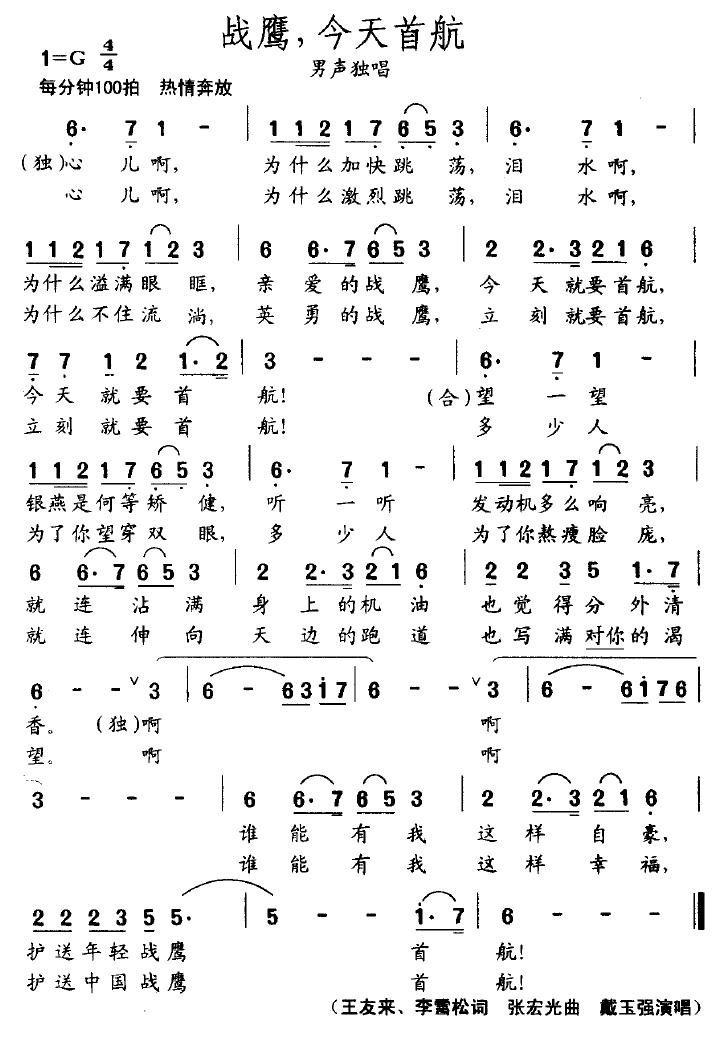 战鹰，今天首航
1=G 4/4
男声独唱
每分钟100拍 热情奔放
6· 7 1 - | 1 1 2 1 7 6 5 3 | 6· 7 1 - |
(独)心 儿 啊, 为什么加快跳 荡, 泪 水 啊,
心 儿 啊, 为什么激烈跳 荡, 泪 水 啊,
1 1 2 1 7 1 2 3 | 6 6· 7 6 5 3 | 2 2· 3 2 1 6 |
为什么溢满眼 眶, 亲 爱 的 战 鹰, 今 天 就要首航,
为什么不住流 淌, 英 勇 的 战 鹰, 立 刻 就要首航,
7 7 1 2 1· 2 | 3 - - - | 6· 7 1 - |
今 天 就 要 首 航! (合)望 一 望
立 刻 就 要 首 航! 多 少 人
1 1 2 1 7 6 5 3 | 6· 7 1 - | 1 1 2 1 7 1 2 3 |
银燕是何等矫 健, 听 一 听 发动机多么响 亮,
为了你望穿双 眼, 多 少 人 为了你熬瘦脸 庞,
6 6· 7 6 5 3 | 2 2· 3 2 1 6 | 2 2 3 5 1· 7 |
就 连 沾 满 身 上 的机 油 也 觉 得 分 外 清
就 连 伸 向 天 边 的跑 道 也 写 满 对你 的 渴
6 - - ∨ 3 | 6 - - 6 3 1 7 | 6 - - ∨ 3 | 6 - - 6 1 7 6 |
香。 (独)啊 啊
望。 啊 啊
3 - - - | 6 6· 7 6 5 3 | 2 2· 3 2 1 6 |
谁 能 有 我 这 样 自 豪,
谁 能 有 我 这 样 幸 福,
2 2 2 3 5 5· | 5 - - 1· 7 | 6 - - - ‖
护 送 年 轻 战 鹰 首 航!
护 送 中 国 战 鹰 首 航!
(王友来、李雷松词 张宏光曲 戴玉强演唱)